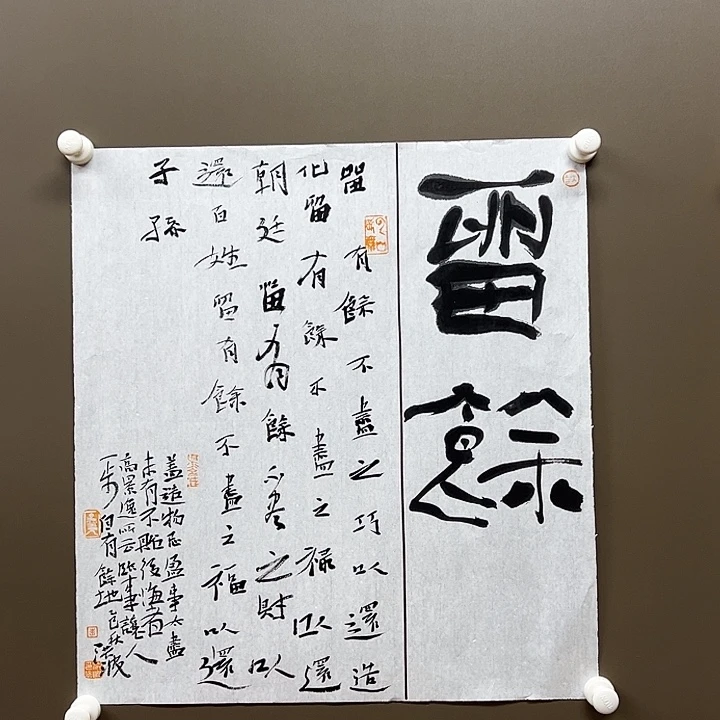 留餘
留有餘不盡之巧以還造
化留有餘不盡之祿以還
朝廷留有餘不盡之財以
還百姓留有餘不盡之福以還
子孫
蓋造物忌盈事太盡
未有不貽後悔者
高景逸所云臨事讓人
一步自有餘地